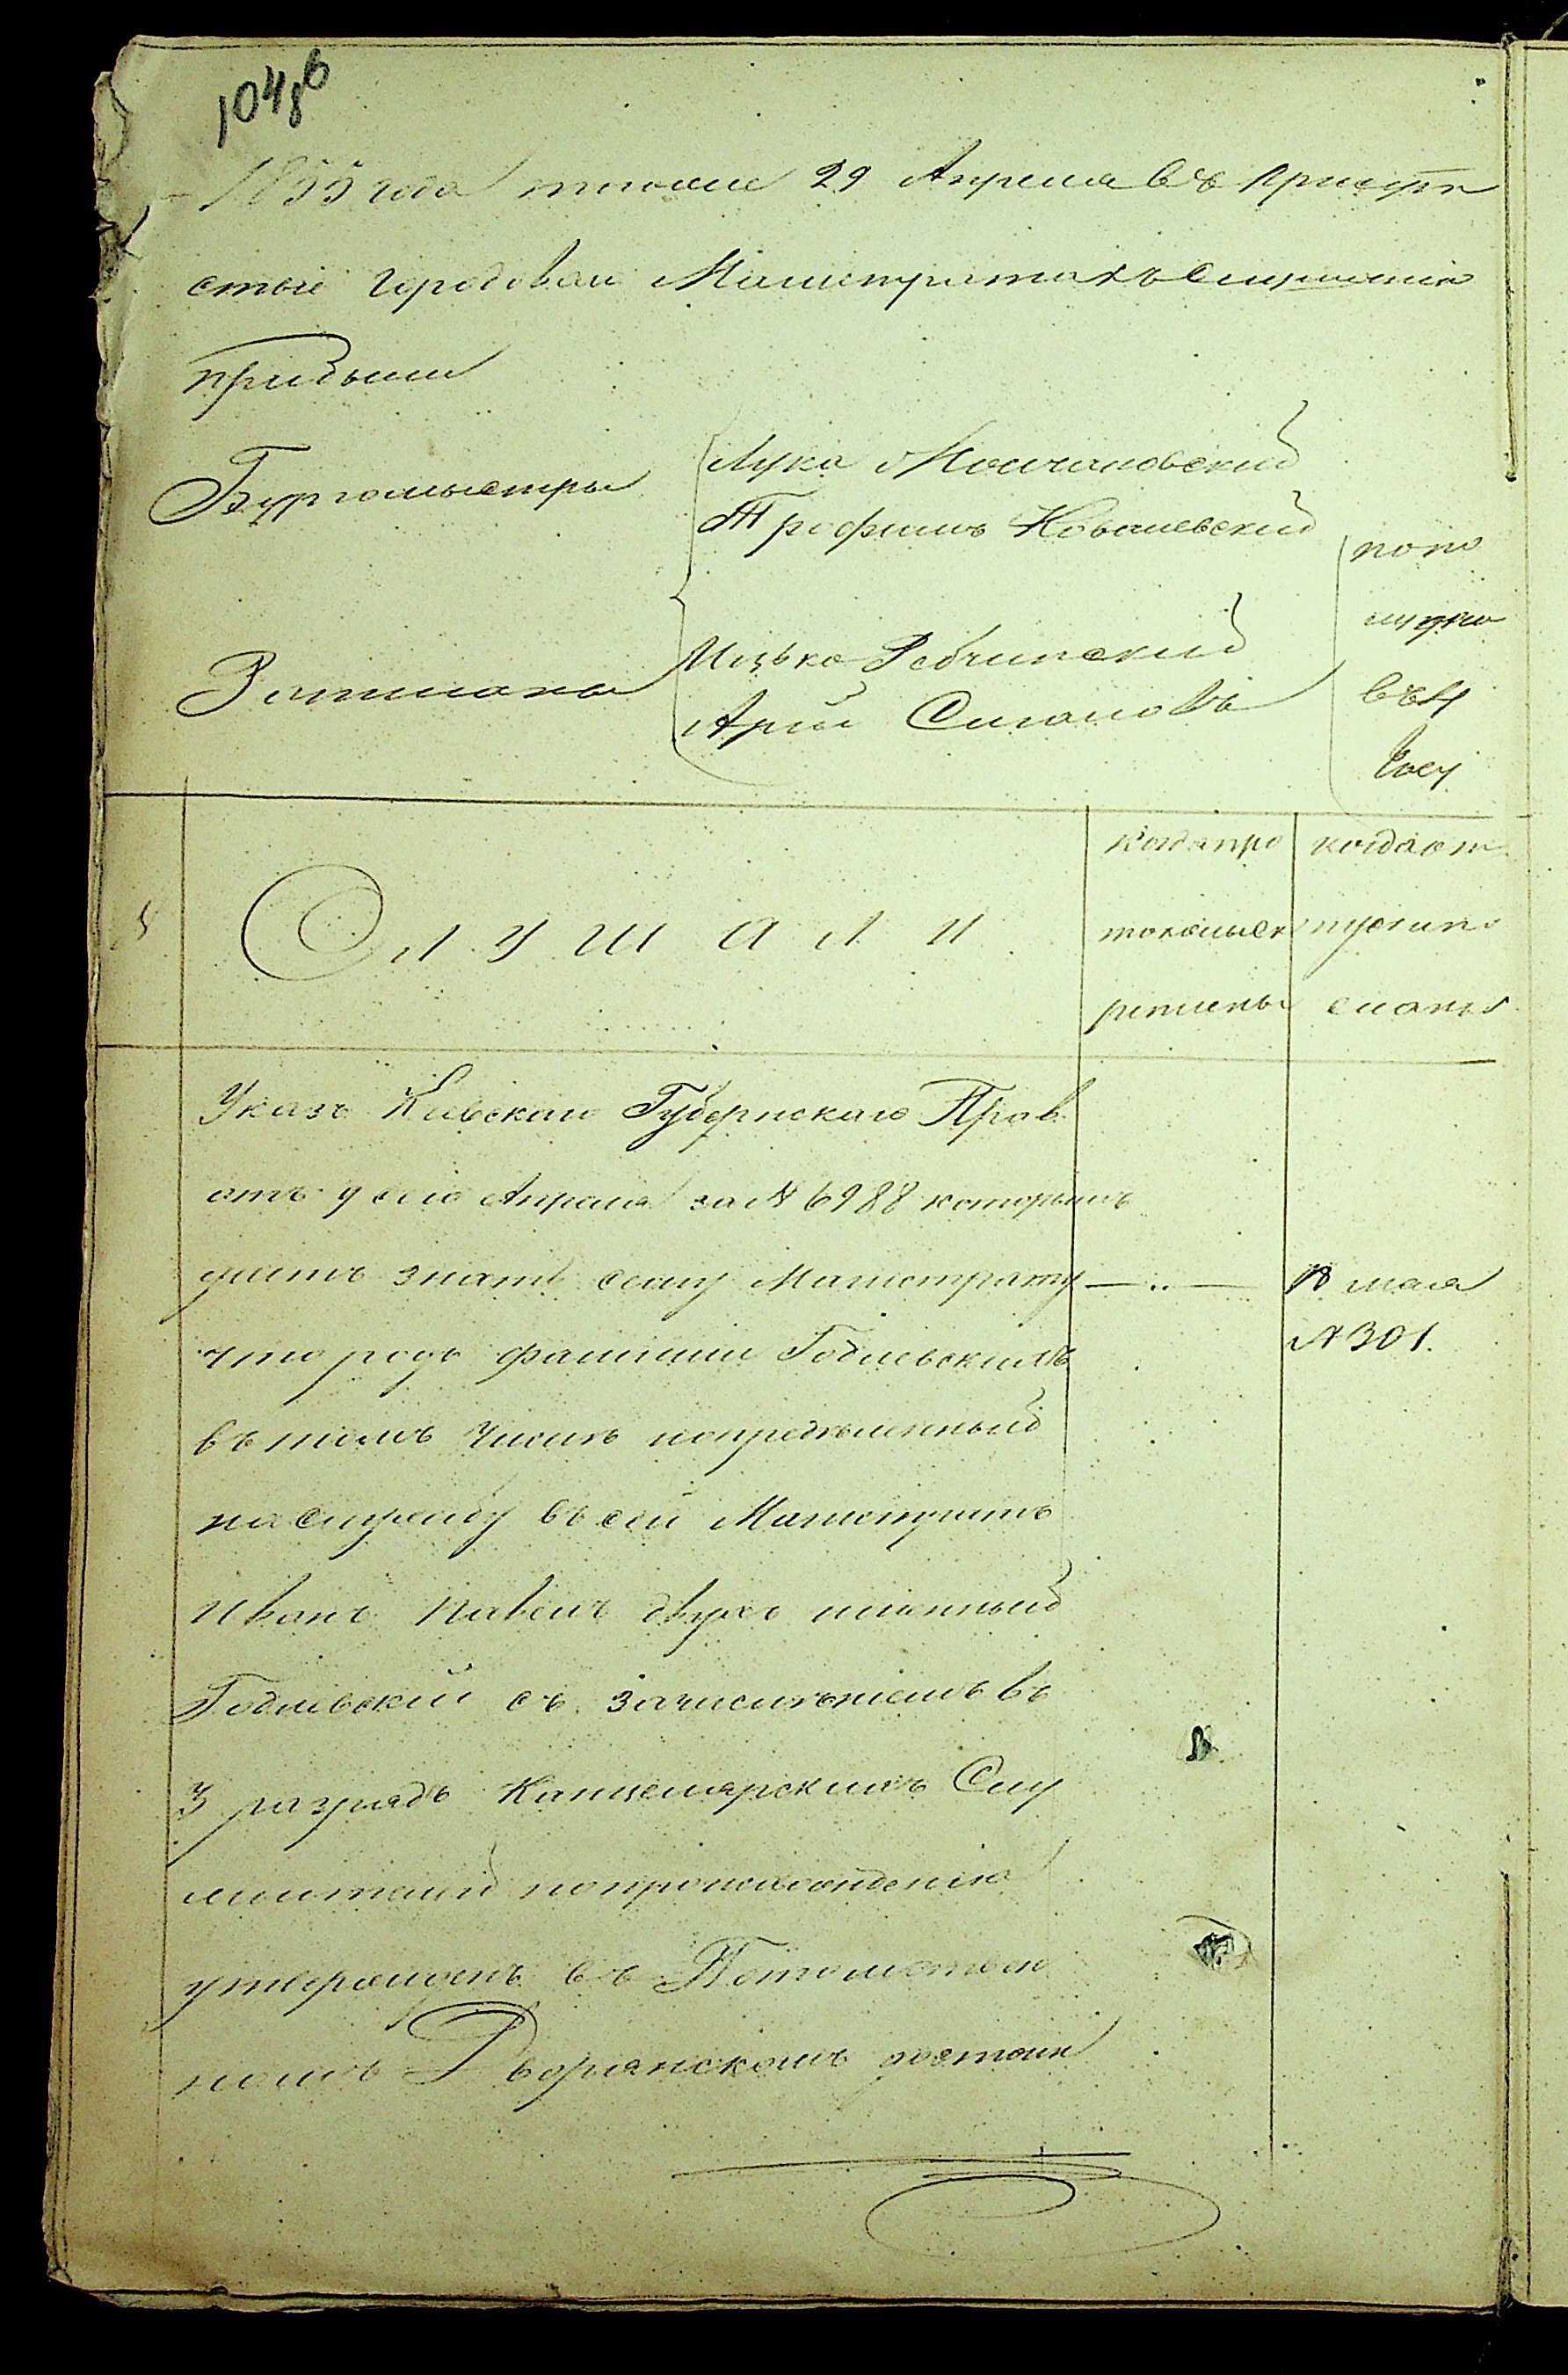 1855 года 29 Апреля въ присутс
ствіе городовой Магистратъ
прибыли
Бургомыстры
Лука Молчановский
Трофимъ Ковалевский
Ратманы
Ицько
Арій
попо
лудно
въ
часу
С Л У Ш А Л И
когда про
токолы
решены
когда от
пущено
Указъ Киевского Губернского Прав.
отъ 9 сего Апреля за № 6988 которымъ
даетъ знать сему Магистрату
что родъ фамилии Годлевскихъ
въ томъ числѣ определенный
на службу въ сей Магистратъ
Иванъ Павелъ двухъ именный
Годлевский съ зачисленіемъ въ
3 разрядъ Канцелярскихъ Слу
жителей попроисхожденію
утвержденъ въ Потомствен
номъ Дворянскомъ достоин
мая
№ 301.